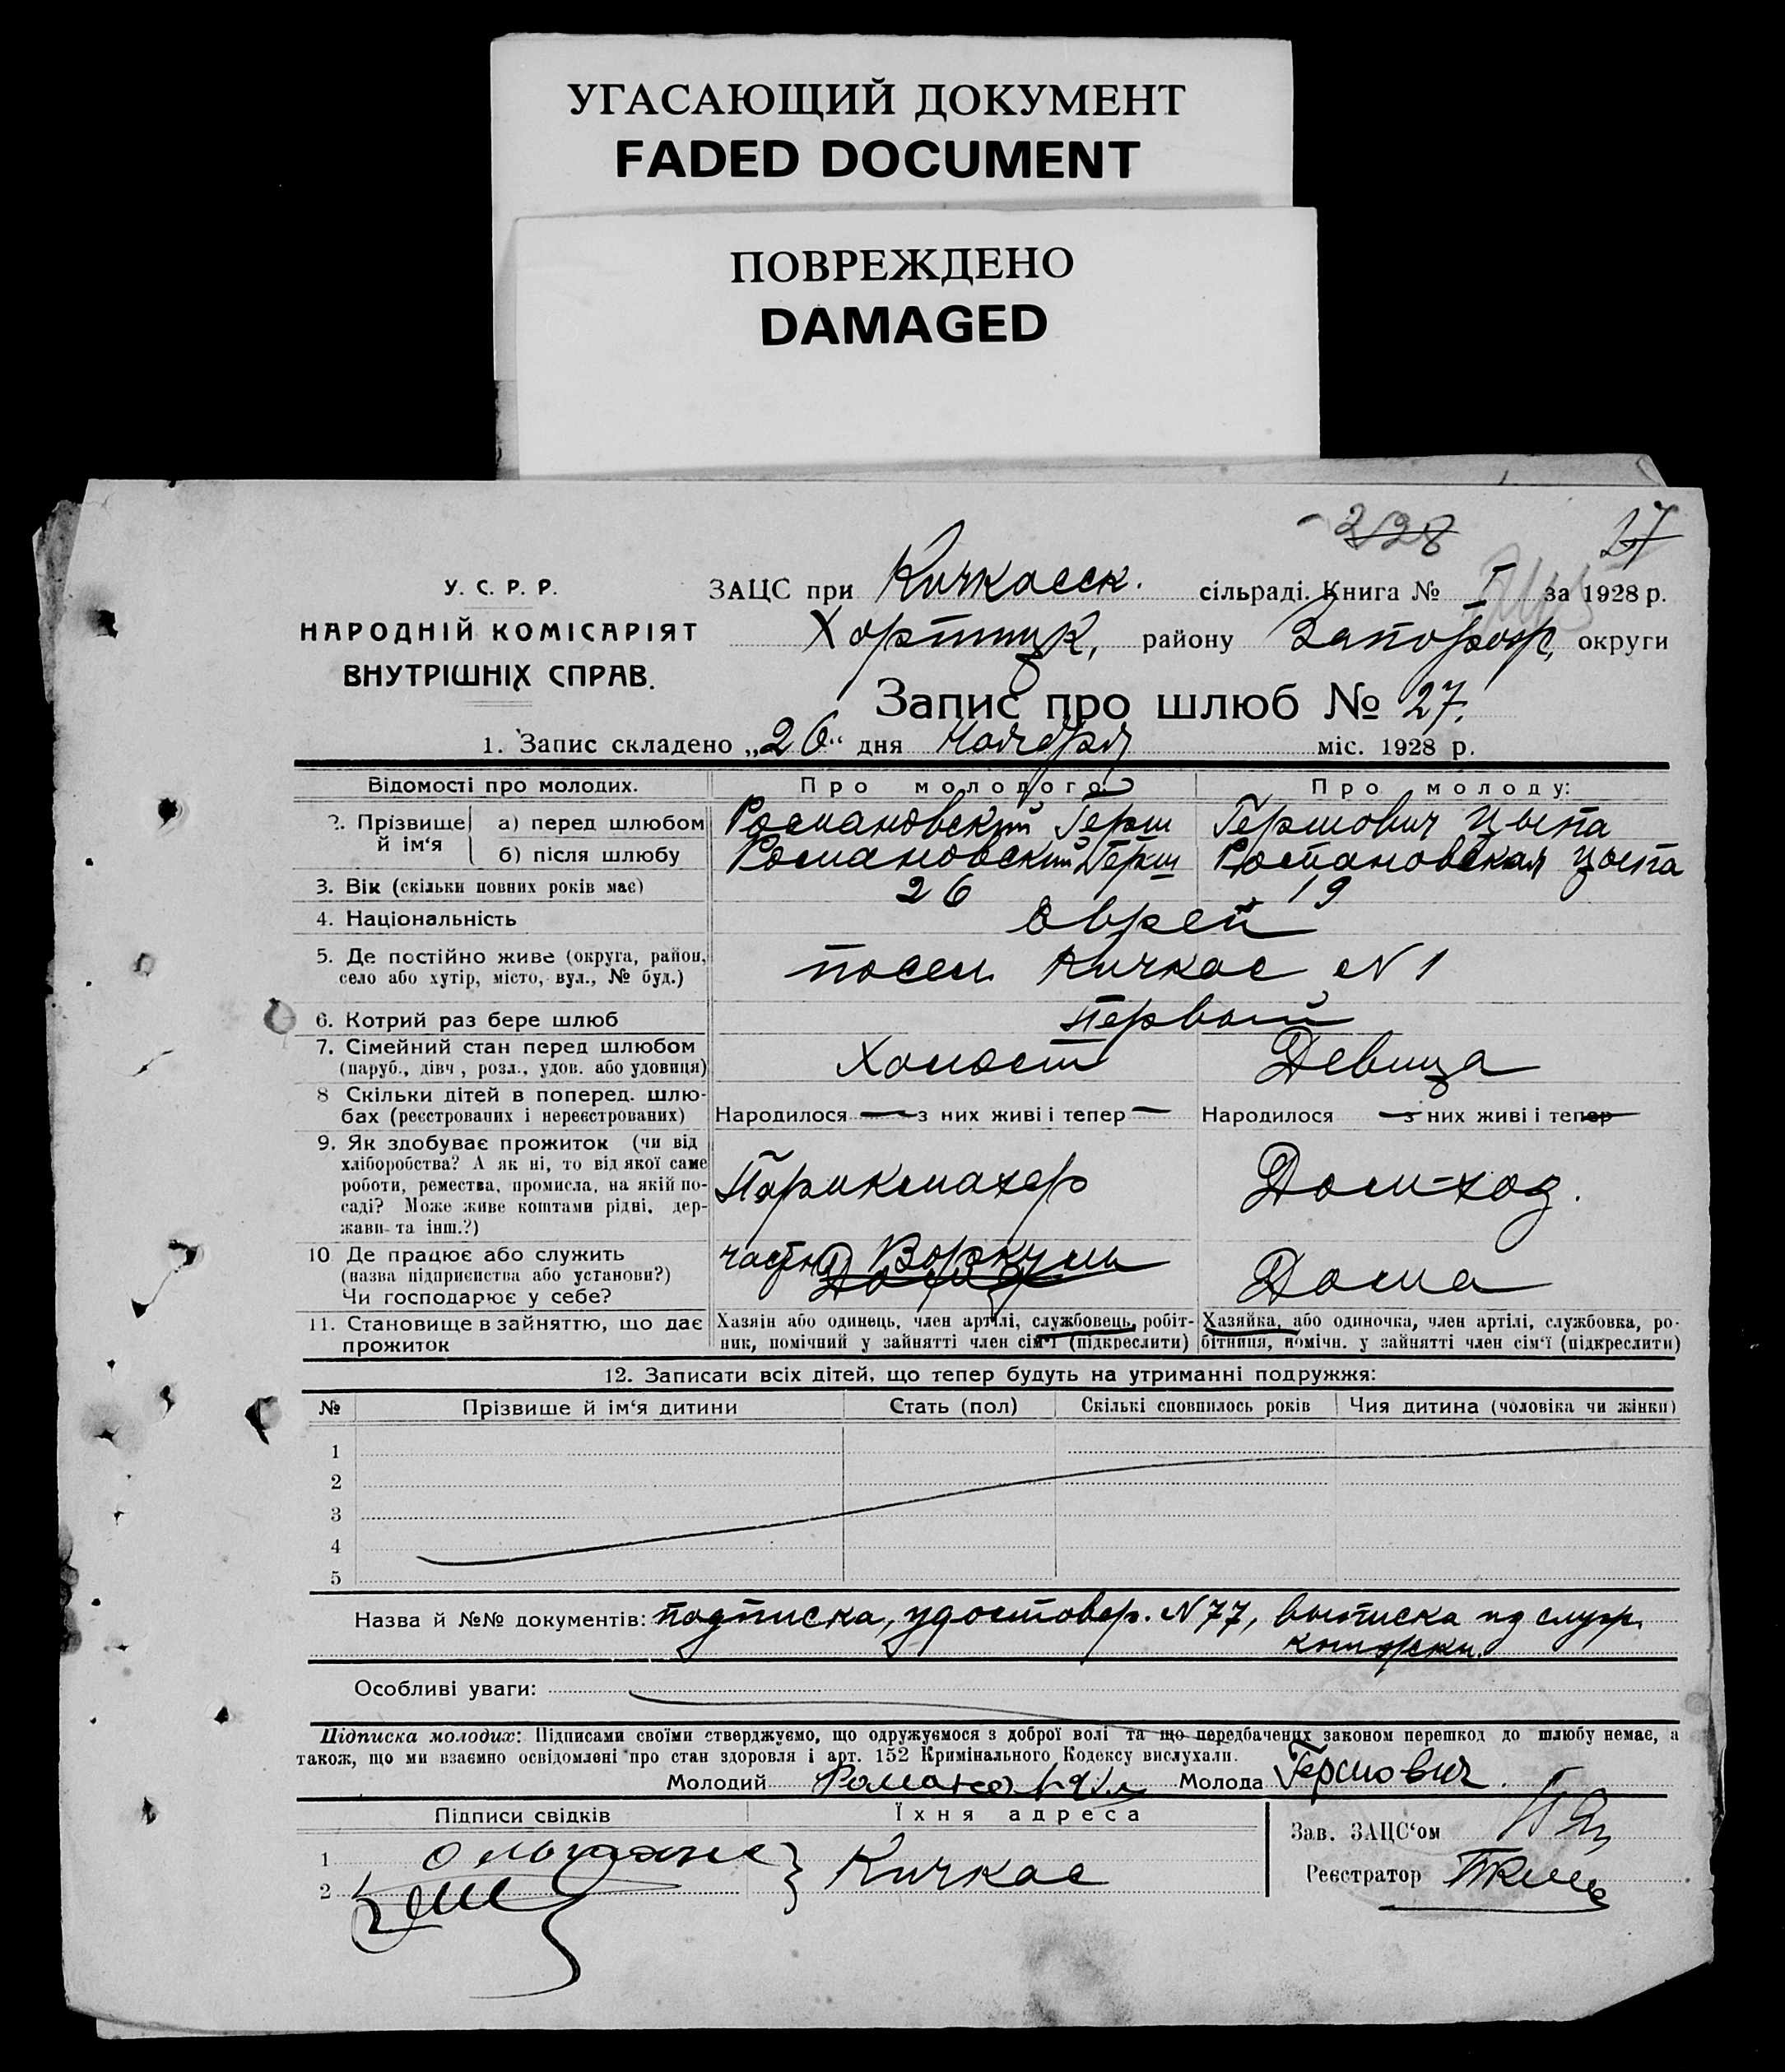 УГАСАЮЩИЙ ДОКУМЕНТ
FADED DOCUMENT
ПОВРЕЖДЕНО
DAMAGED
328 27
У. С. Р. Р.
НАРОДНІЙ КОМІСАРІЯТ
ВНУТРІШНІХ СПРАВ.
ЗАЦС при Кичкасск. сільраді. Книга № I за 1928 р.
Хортицк, району Запорож, округи
Запис про шлюб № 27.
1. Запис складено „26“ дня Ноября міс. 1928 р.
Відомості про молодих. Про молодого: Про молоду:
2. Прізвище й ім‘я а) перед шлюбом Романовский Герш Гершович Цыпа
б) після шлюбу Романовский Герш Романовская Цыпа
3. Вік (скільки повних років має) 26 19
4. Національність еврей
5. Де постійно живе (округа, район, село або хутір, місто, вул., № буд.) посел. Кичкас N 1
6. Котрий раз бере шлюб Первый
7. Сімейний стан перед шлюбом (паруб., дівч, розл., удов. або удовиця) Холост Девица
8 Скільки дітей в поперед. шлюбах (реєстрованих і нереєстрованих) Народилося — з них живі і тепер — Народилося — з них живі і тепер
9. Як здобуває прожиток (чи від
хліборобства? А як ні, то від якої саме
роботи, ремества, промисла, на якій посаді? Може живе коштами рідні, держави та інш.?) Парикмахер Дом-хоз.
10 Де працює або служить
(назва підприємства або установи?)
Чи господарює у себе? Дома
11. Становище в зайняттю, що дає прожиток
Хазяін або одинець, член артілі, службовець, робітник, помічний у зайнятті член сім‘ї (підкреслити)
Хазяйка, або одиночка, член артілі, службовка, робітниця, помічн. у зайнятті член сім‘ї (підкреслити)
12. Записати всіх дітей, що тепер будуть на утриманні подружжя:
№ Прізвище й ім‘я дитини Стать (пол) Скількі сповнилось років Чия дитина (чоловіка чи жінки)
1
2
3
4
5
Назва й №№ документів: подписка, удостовер. N 77, выписка из служ.
книжки.
Особливі уваги:
Підписка молодих: Підписами своїми стверджуємо, що одружуємося з доброї волі та що передбачених законом перешкод до шлюбу немає, а
також, що ми взаємно освідомлені про стан здоровля і арт. 152 Кримінального Кодексу вислухали.
Молодий Молода Гершович.
Підписи свідків Їхня адреса
Зав. ЗАЦС‘ом
1 Кичкас
2
Реєстратор